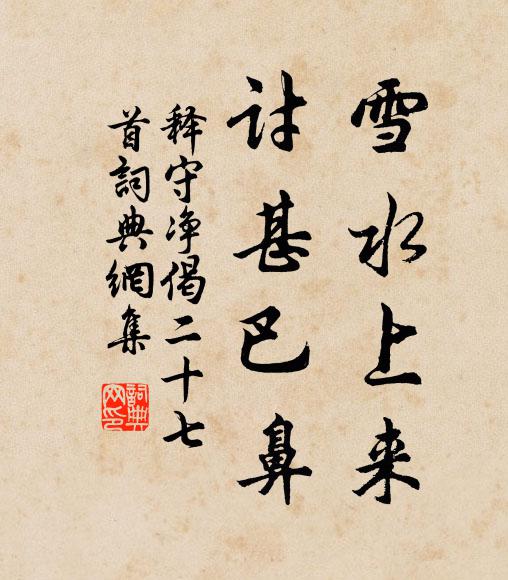 雪水上来
討甚巴鼻
释守净偈二十七
首詞典網集
詞典
网印